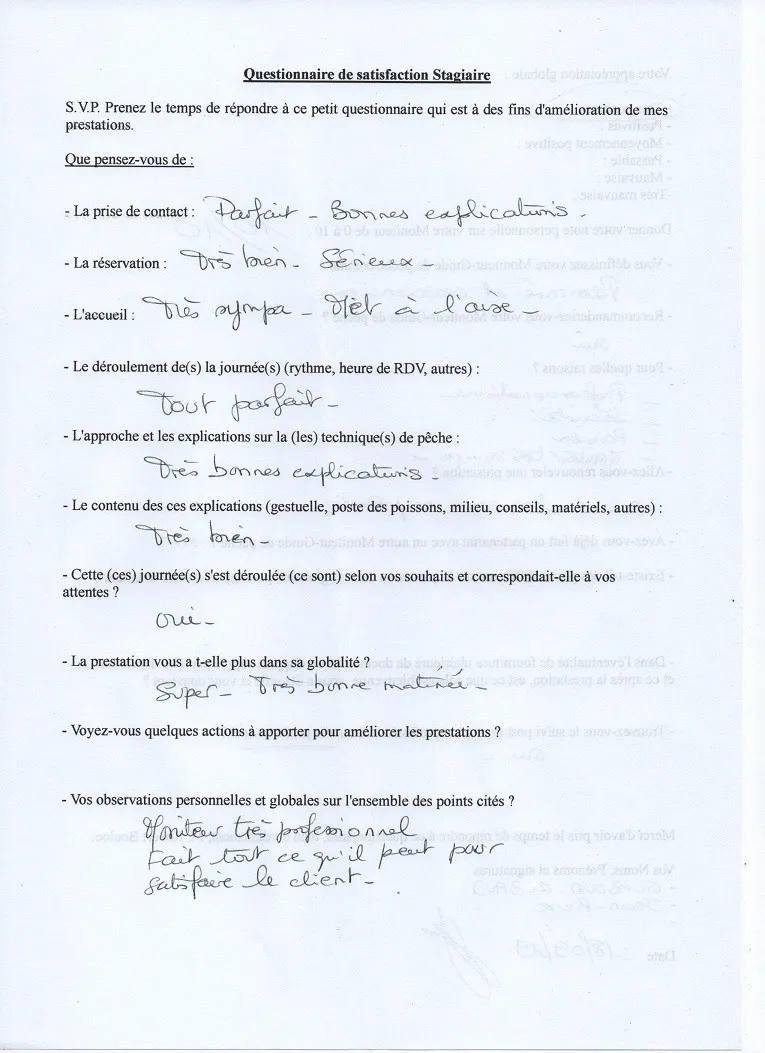 Questionnaire de satisfaction Stagiaire
S.V.P. Prenez le temps de répondre à ce petit questionnaire qui est à des fins d'amélioration de mes
prestations.
Que pensez-vous de :
- La prise de contact : Parfait - Bonnes explications.
- La réservation : Très bien - Sérieux -
- L'accueil : Très sympa - Met à l'aise -
- Le déroulement de(s) la journée(s) (rythme, heure de RDV, autres) :
Tout parfait -
- L'approche et les explications sur la (les) technique(s) de pêche :
Très bonnes explications -
- Le contenu des ces explications (gestuelle, poste des poissons, milieu, conseils, matériels, autres) :
Très bien -
- Cette (ces) journée(s) s'est déroulée (ce sont) selon vos souhaits et correspondait-elle à vos
attentes ?
Oui -
- La prestation vous a t-elle plus dans sa globalité ?
Super - Très bonne matinée -
- Voyez-vous quelques actions à apporter pour améliorer les prestations ?
- Vos observations personnelles et globales sur l'ensemble des points cités ?
Moniteur très professionnel
Fait tout ce qu'il peut pour
satisfaire le client -